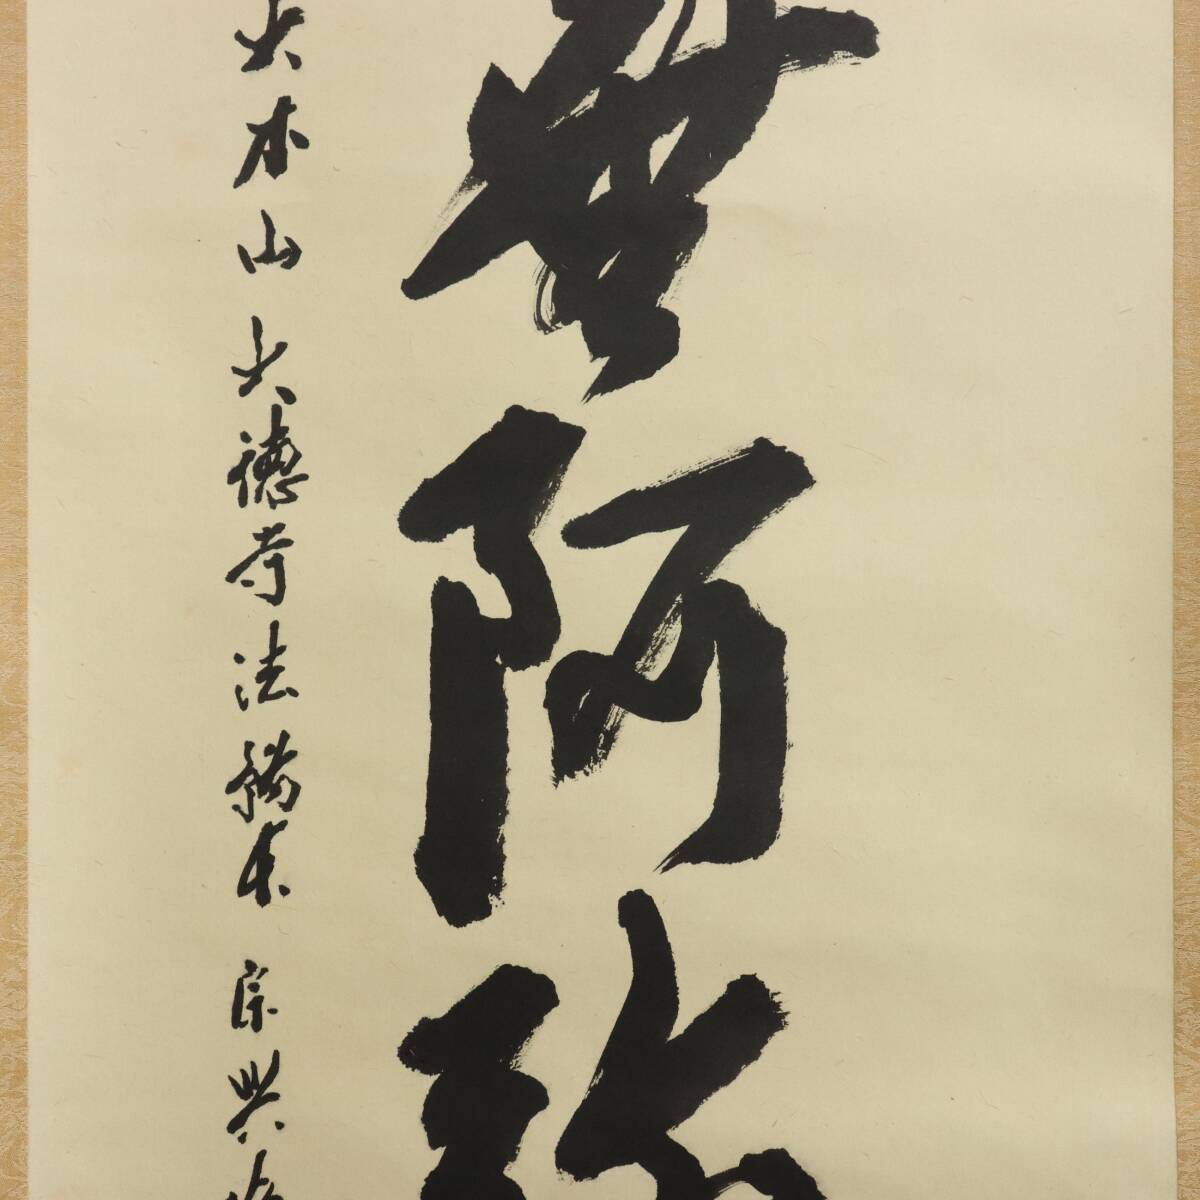 無阿弥
大本山大徳寺法務本宗興